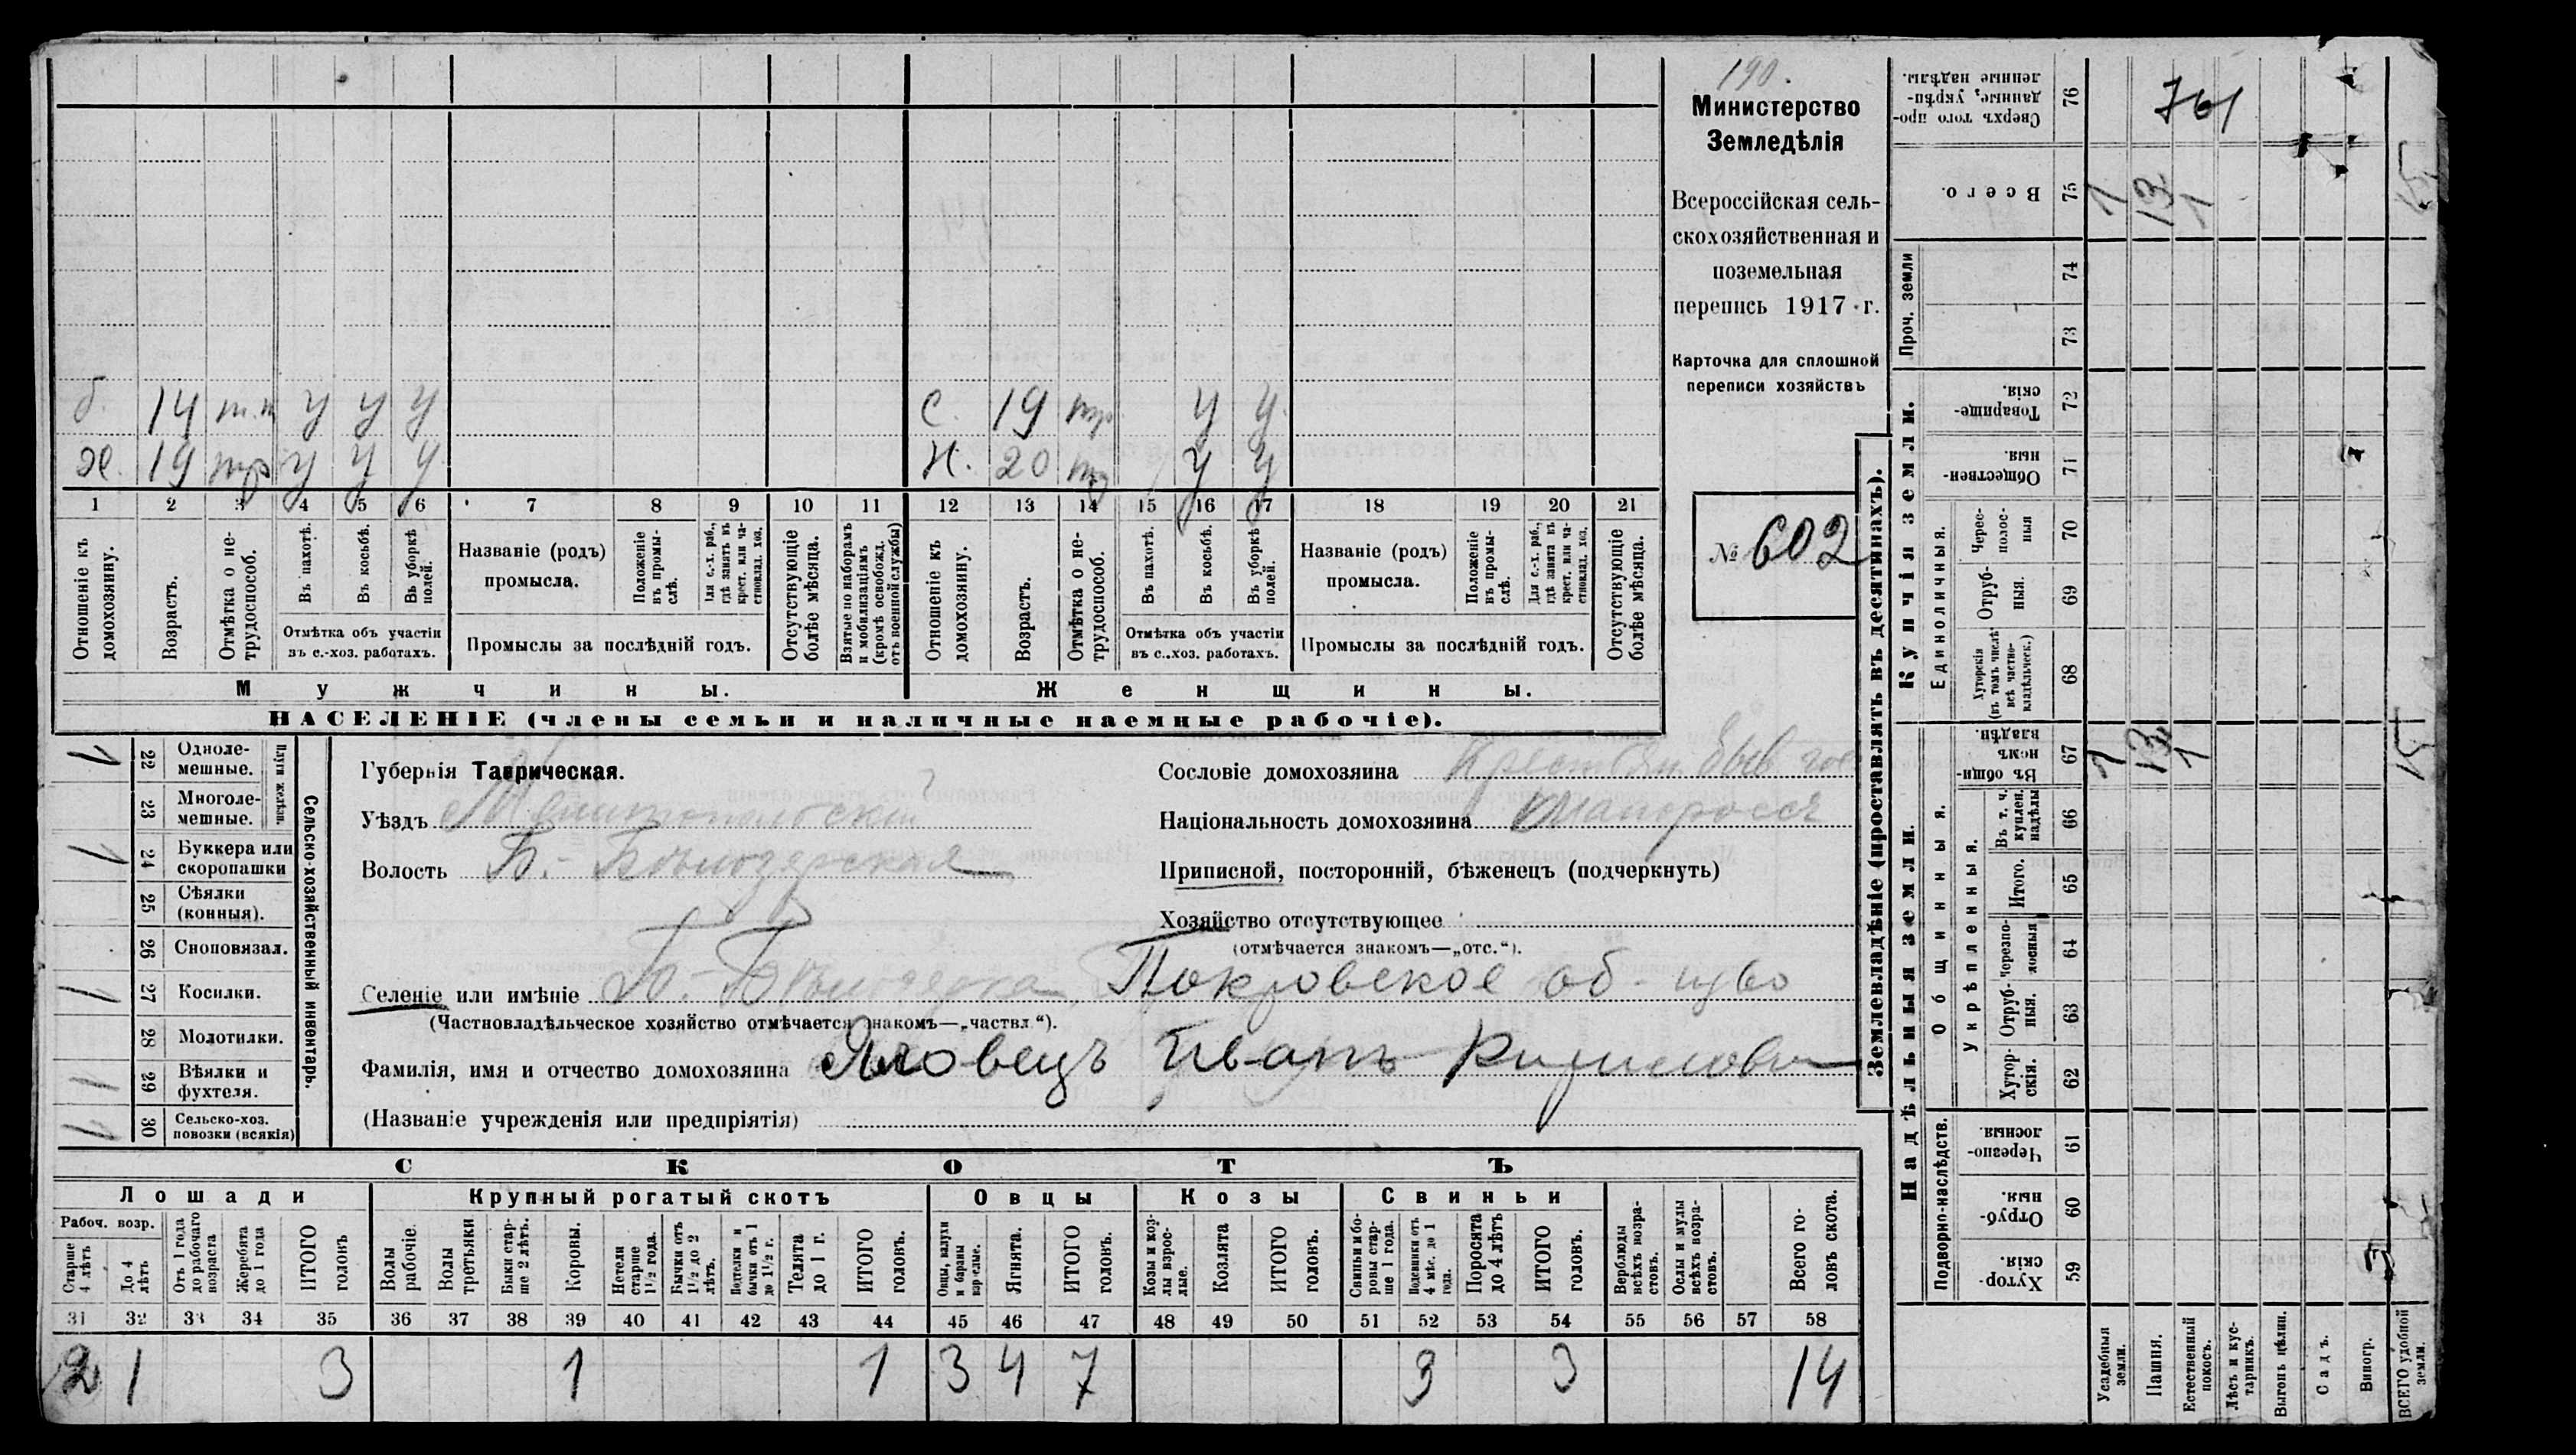 190.
Министерство
Земледѣлія
Всероссійская сель-
скохозяйственная и
поземельная
перепись 1917 г.
Карточка для сплошной
переписи хозяйствъ
№ 602
б. 14 у у у с. 19 тр у у
х. 19 тр у у у ж. 20 тр у у
1 2 3 4 5 6 7 8 9 10 11 12 13 14 15 16 17 18 19 20 21
Отношеніе къ домохозяину.
Возрастъ.
Отмѣтка о не-трудоспособ.
Въ пахотѣ.
Въ косьбѣ.
Въ уборкѣ полей.
Отмѣтка объ участіи
въ с.-хоз. работахъ.
Названіе (родъ)
промысла.
Положеніе въ промы-слѣ.
Для с.-х. раб., гдѣ занятъ въ крест. или ча-стновлад. хоз.
Промыслы за послѣдній годъ.
Отсутствующіе болѣе мѣсяца.
Взятые по наборамъ и мобилизаціямъ (кромѣ освобожд. отъ военной службы)
Отношеніе къ домохозяину.
Возрастъ.
Отмѣтка о не-трудоспособ.
Въ пахотѣ.
Въ косьбѣ.
Въ уборкѣ полей.
Отмѣтка объ участіи
въ с..хоз. работахъ.
Названіе (родъ)
промысла.
Положеніе въ промы-слѣ.
Для с.-х. раб., гдѣ занята въ крест. или ча-стновлад. хоз.
Промыслы за послѣдній годъ.
Отсутствующіе болѣе мѣсяца.
Мужчины.
Женщины.
НАСЕЛЕНІЕ (члены семьи и наличные наемные рабочіе).
Сельско-хозяйственный инвентарь.
Плуги желѣзн.
1 22 Одноле-мешные.
23 Многоле-мешные.
1 24 Буккера или скоропашки
25 Сѣялки (конныя).
26 Сноповязал.
1 27 Косилки.
28 Молотилки.
1 29 Вѣялки и фухтеля.
30 Сельско-хоз. повозки (всякія)
Губернія Таврическая.
Уѣздъ Мелитопольскій
Волость Б.-Бѣлозерская
Селеніе или имѣніе Б.-Бѣлозерка, Покровское об-щво
(Частновладѣльческое хозяйство отмѣчается знакомъ—„частвл“).
Фамилія, имя и отчество домохозяина Яловецъ Иванъ Кирилович
(Названіе учрежденія или предпріятія)
Сословіе домохозяина Крестьян. быв. гос
Національность домохозяина Малороссъ
Приписной, посторонній, бѣженецъ (подчеркнуть)
Хозяйство отсутствующее
(отмѣчается знакомъ—„отс.“).
СКОТЪ
Лошади
Крупный рогатый скотъ
Овцы
Козы
Свиньи
Рабоч. возр.
Старше 4 лѣтъ
До 4 лѣтъ
Отъ 1 года до рабочаго возраста
Жеребята до 1 года
ИТОГО головъ
Волы рабочіе.
Волы третьяки
Быки стар-ше 2 лѣтъ.
Коровы.
Нетели старше 1 1/2 года.
Бычки отъ 1 1/2 до 2 лѣтъ.
Подтелки и бычки отъ 1 до 1 1/2 г.
Телята до 1 г.
ИТОГО головъ.
Овцы, валухи и бараны взрослые.
Ягнята.
ИТОГО головъ.
Козы и коз-лы взрос-лые.
Козлята
ИТОГО головъ.
Свиньи и бо-ровы стар-ше 1 года.
Подсвинки отъ 4 мѣс. до 1 года.
Поросята до 4 лѣтъ
ИТОГО головъ.
Верблюды всѣхъ возра-стовъ.
Ослы и мулы всѣхъ возра-стовъ.
Всего го-ловъ скота.
31 32 33 34 35 36 37 38 39 40 41 42 43 44 45 46 47 48 49 50 51 52 53 54 55 56 57 58
2 1 3 1 1 3 4 7 3 3 14
Землевладѣніе (проставлять въ десятинахъ).
Купчія земли.
Надѣльныя земли.
Проч. земли
Единоличныя.
Общинныя.
Укрѣпленныя.
Подворно-наслѣдств.
76 Сверхъ того про-данные, укрѣп-ленные надѣлы.
761
75 Всего. 1 13 1 15
74
73
72 Товарище-скія.
71 Обществен-ныя.
70 Черес-полос-ныя
69 Отруб-ныя.
68 Хуторскія (въ томъ числѣ всѣ частно-владѣльческ.)
67 Въ общин-номъ владѣн. 1 13 1 15
66 Въ т. ч. куплен. надѣлы
65 Итого.
64 Черезпо-лосныя
63 Отруб-ныя.
62 Хутор-скія.
61 Черезпо-лосныя.
60 Отруб-ныя.
59 Хутор-скія.
Усадебныя земли.
Пашня.
Естественный покосъ.
Лѣсъ и кус-тарникъ.
Выгонъ цѣлин.
Садъ.
Виногр.
ВСЕГО удобной земли.